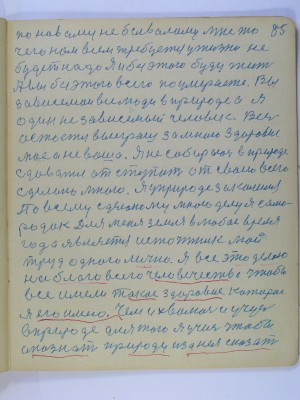 по новому не бывалому мне то 85
чего нам всем требуется у жизни не
будет надо Я без этого буду жить
А вы без этого всего поумираете. Вы
зависимые все люди в природе а я
один не зависемый человек. Вед
остости выиграш за мною здоровье
мое а не ваша. Я не собираюсь в природе
сдаватся отступать от своего всего
сделано мною. Я у природе закалился
По всему сделоному мною делу я само-
родок Для меня земля в любое время
года является источник мой
труд одного лично. Я все это делаю
на благо всего человечество чтобы
все имели такое здоровие которое
я его имею. Чем и хвалюсь и учусь
в природе для того я учусь чтобы
опознать природу и за нея сказать